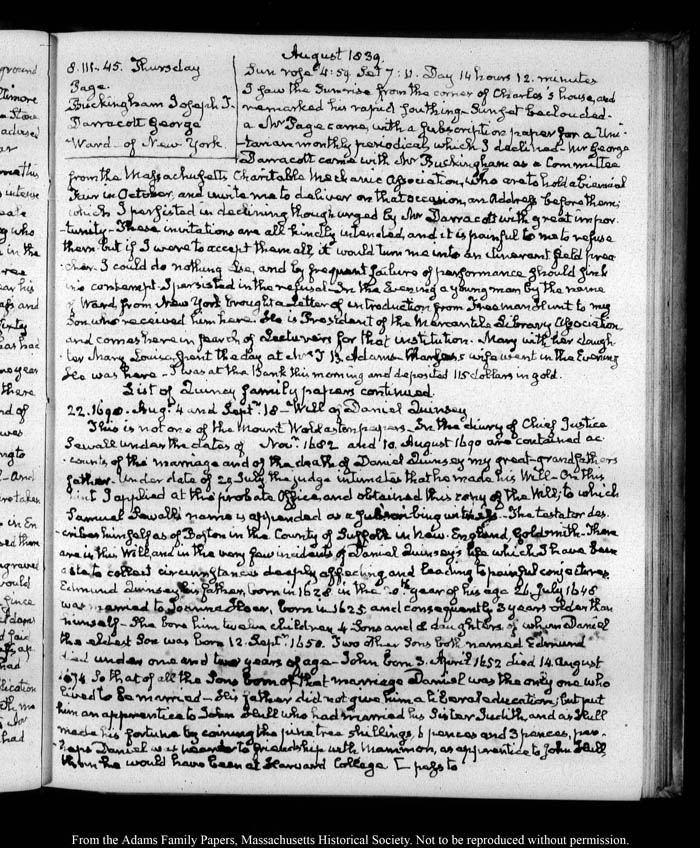 August 1839.
8. III-45. Thursday
Page.
Buckingham Joseph T.
Darracott George
Ward - of New York.
Sun rose 4:59. Set 7:11. Day 14 hours 12. minutes
I saw the Sunrise from the corner of Charles's house, and
remarked his rapid Southing - Sunset beclouded.
a Mr Page came, with a subscription paper for a Uni-
-tarian monthly periodical, which I declined. Mr George
Darracott came with Mr Buckingham as a Committee
from the Massachusetts Charitable Mechanic Association, who are to hold a biennial
Fair in October, and invite me to deliver on that occasion, an Address before them;
which I persisted in declining though urged by Mr Darracott with great impor-
-tunity - These invitations are all kindly intended, and it is painful to me to refuse
them but if I were to accept them all it would turn me into an itinerant field prea-
-cher. I could do nothing else, and by frequent failure of performance should sink
into contempt. I persisted in the refusal - In the Evening a young man by the name
of Ward from New York brought a Letter of introduction from Freeman Hunt to my
Son who received him here. He is President of the Mercantile Library Association,
and comes here in search of Lecturers for that institution. Mary with her daugh-
ter Mary Louisa, spent the day at Mrs T. B. Adams - Charles's wife went in the Evening
He was here - I was at the Bank this morning and deposited 115 dollars in gold.
List of Quincy family papers continued
22. 1690. Augt 4 and Septr 18 - Will of Daniel Quinsey
This is not one of the Mount Wollaston papers - In the diary of Chief Justice
Sewall under the dates of Novr 1682 and 10. August 1690 are contained ac-
-counts of the marriage and of the death of Daniel Quinsey my great-grandfathers
father. Under date of 29 July the judge intimates that he made his Will - On this
hint I applied at the probate Office, and obtained this copy of the Will, to which
Samuel Sewall's name is appended as a subscribing witness - The testator des-
-cribes himself as of Boston in the County of Suffolk in New-England, Goldsmith - There
are in this Will, and in the very few incidents of Daniel Quinsey's life which I have been
able to collect circumstances deeply affecting and leading to painful conjectures.
Edmund Quinsey his father, born in 1628, in the 20th year of his age 26. July 1648
was married to Joanna Hoar, born in 1625 and consequently 3 years older than
himself - She bore him twelve children, 4 Sons and 8 daughters of whom Daniel
the eldest Son was born 12. Septr 1650. Two other Sons both named Edmund
died under one and two years of age - John born 3. April 1652 died 14. August
1674 So that of all the Sons born of that marriage Daniel was the only one who
lived to be married - His father did not give him a liberal education; but put
him an apprentice to John Hull who had married his Sister Judith, and as Hull
made his fortune by coining the pine tree shillings, 6 pences and 3 pences, per-
-haps Daniel was nearer to friendship with Mammon, as apprentice to John Hull,
than he would have been at Harvard College
From the Adams Family Papers, Massachusetts Historical Society. Not to be reproduced without permission.